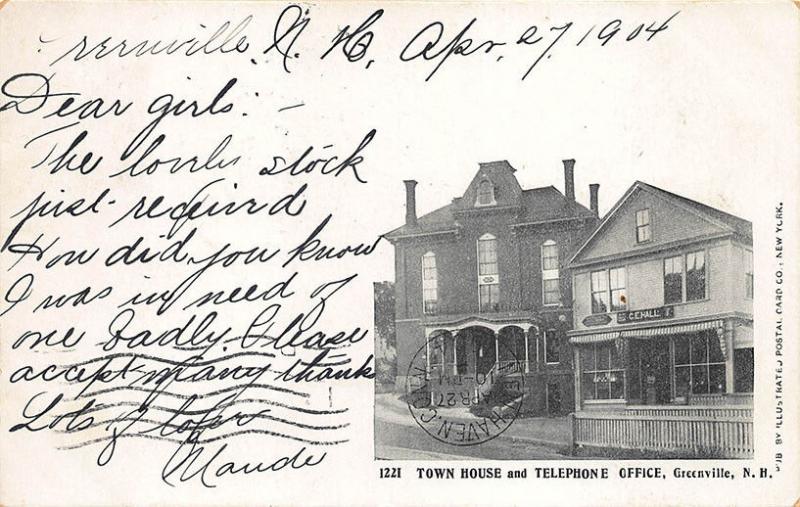 Greenville, N. H. Apr. 27, 1904
Dear girls: -
The lovely stock
just received
How did you know
I was in need of
one badly. Please
accept many thanks
Lots of love
Maude
C.E. HALL
NEW HAVEN, C
APR 27
10-PM
1
1221 TOWN HOUSE and TELEPHONE OFFICE, Greenville, N. H.
PUB BY ILLUSTRATED POSTAL CARD CO., NEW YORK.